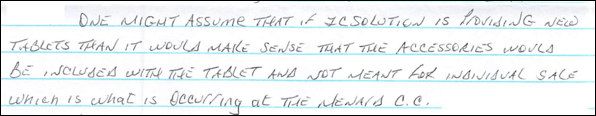 ONE MIGHT ASSUME THAT if ICSOLUTION IS PROVIDING NEW
TABLETS THAN IT WOULD MAKE SENSE THAT THE ACCESSORIES WOULD
BE INCLUDED WITH THE TABLET AND NOT MEANT FOR INDIVIDUAL SALE
which is what is Occurring at THE MENARD C.C.